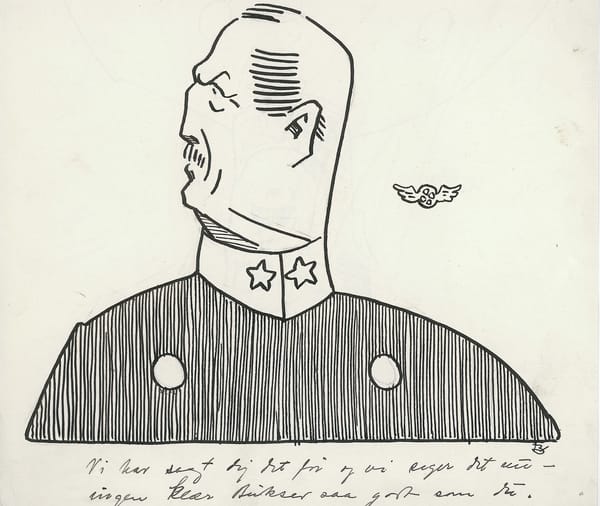 Vi har sagt dig det før og vi siger det nu –
ingen klær Bukser saa godt som du.